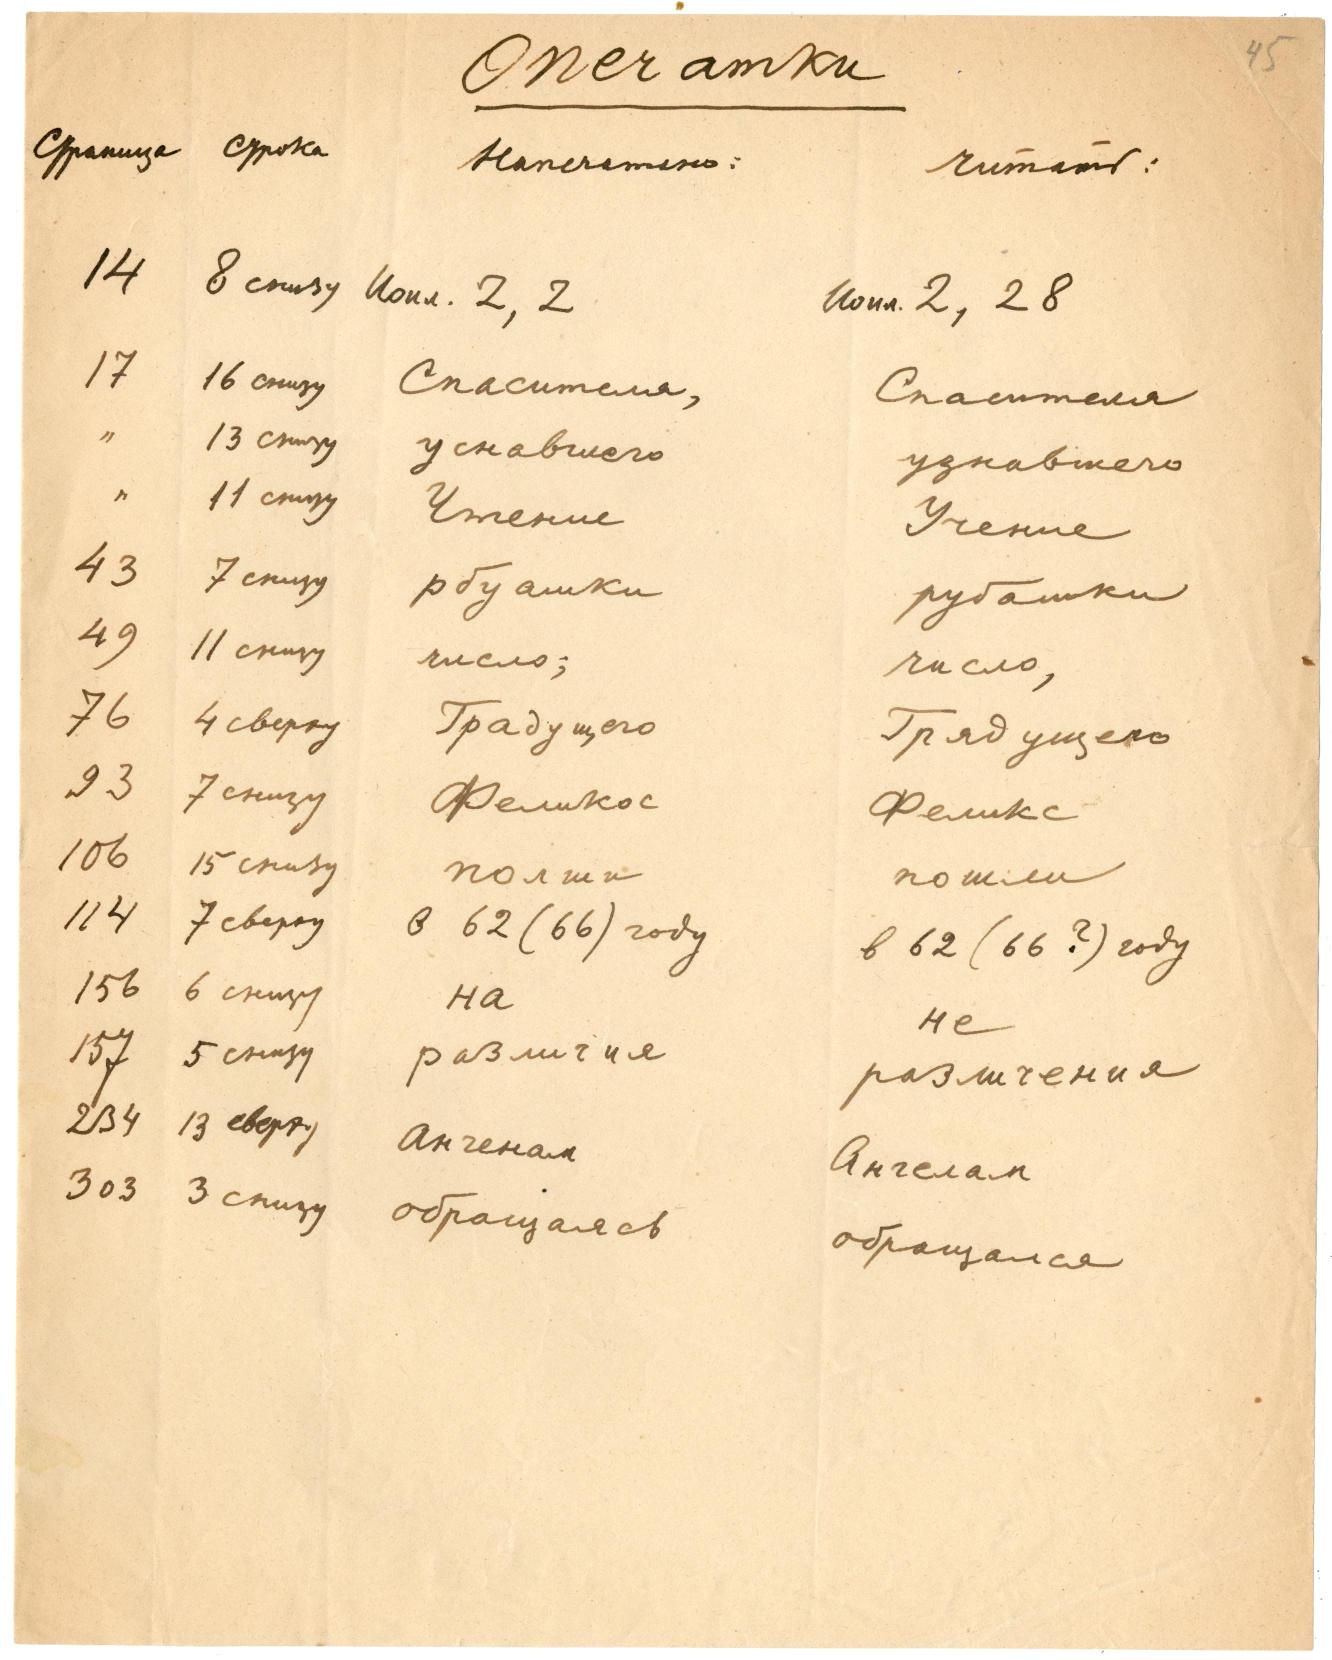 45
Опечатки
Страница строка Напечатано: читать:
14 8 снизу Иоил. 2, 2 Иоил. 2, 28
17 16 снизу Спасителя, Спасителя
" 13 снизу уснавшего узнавшего
" 11 снизу Чтение Учение
43 7 снизу рбуашки рубашки
49 11 снизу число; число,
76 4 сверху Традущего Грядущего
93 7 снизу Феликос Феликс
106 15 снизу полши пошли
114 7 сверху в 62 (66) году в 62 (66 ?) году
156 6 снизу на не
157 5 снизу различия различения
234 13 сверху Анченам Ангелам
303 3 снизу обращаясь обращался